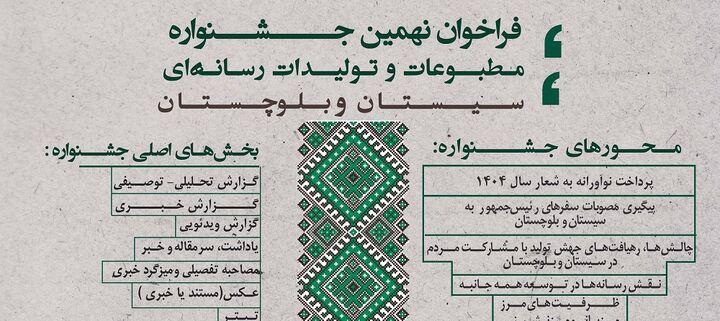 فراخوان نهمین جشنواره
مطبوعات و تولیدات رسانه‌ای
سیستان و بلوچستان
محورهای جشنواره:
پرداخت نوآورانه به شعار سال ۱۴۰۴
پیگیری مصوبات سفرهای رئیس‌جمهور به
سیستان و بلوچستان
چالش‌ها، رهیافت‌های جهش تولید با مشارکت مردم
در سیستان و بلوچستان
نقش رسانه‌ها در توسعه همه جانبه
ظرفیت‌های مرز
بخش‌های اصلی جشنواره:
گزارش تحلیلی- توصیفی
گزارش خبری
گزارش ویدئویی
یاداشت، سرمقاله و خبر
مصاحبه تفصیلی ومیزگرد خبری
عکس(مستند یا خبری )
تیتر